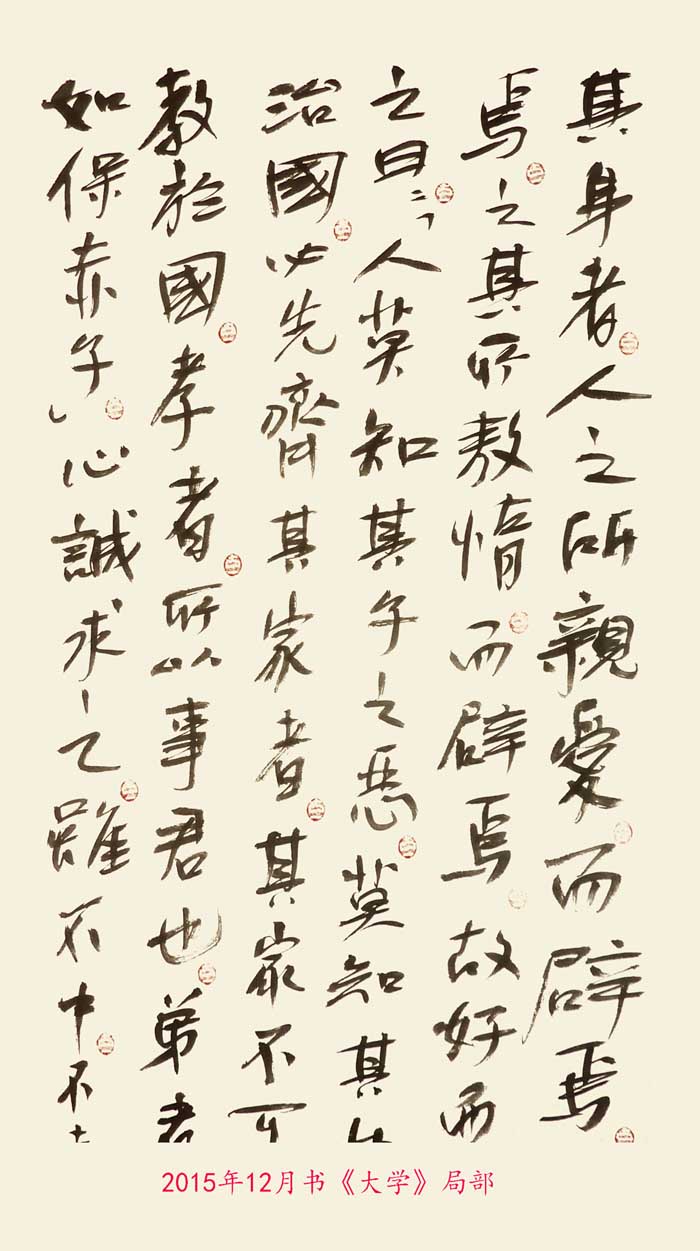 其身者人之所親愛而辟焉
焉之其所敖惰而辟焉故好而
之曰人莫知其子之惡莫知其
治國必先齊其家者其家不可
教於國孝者所以事君也弟者
如保赤子心誠求之雖不中不
2015年12月书《大学》局部